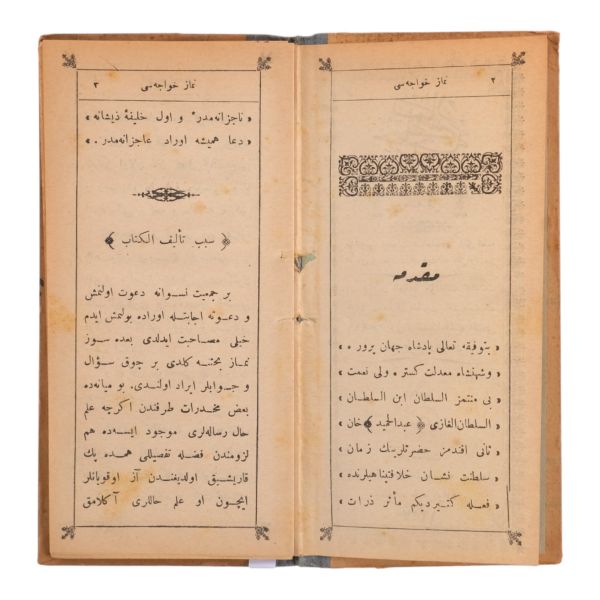 نماز خواجه‌سی ٢
مقدمه
بتوفیقه تعالی پادشاه جهان پرور ٭
وشهنشاه معدلت کستر ٭ ولی نعمت
بی منتمز السلطان ابن السلطان
السلطان الغازی ﴿ عبدالحمید ﴾ خان
ثانی افندمز حضرتلرینك زمان
سلطنت نشان خلافتپناهیلرنده
فعله کتیردیکم مآثر ذرات
نماز خواجه‌سی ٣
ناچزانه‌مدر ٭ و اول خلیفهٔ ذیشانه ٭
دعا همیشه اوراد عاجزانه‌مدر . ٭
﴿ سبب تألیف الکتاب ﴾
بر جمعیت نسوانه دعوت اولنمش
و دعوته اجابتله اوراده بولنمش ایدم
خیلی مصاحبت ایدلدی بعده سوز
نماز بحثنه کلدی بر چوق سؤال
و جوابلر ایراد اولندی. بو میانه‌ده
بعض مخدرات طرفندن اکرچه علم
حال رساله‌لری موجود ایسه‌ده هم
لزومندن فضله تفصیللی همده پك
قاریشیق اولدیغندن آز اوقویانلر
ایچون او علم حاللری آکلامق